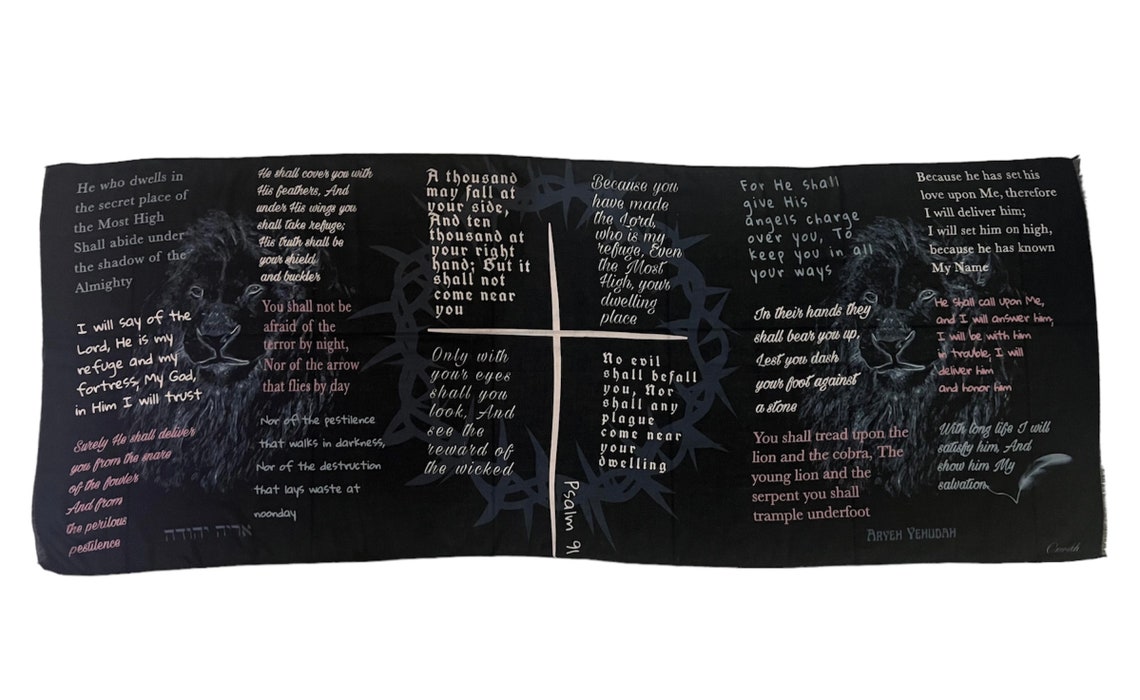 He who dwells in
the secret place of
the Most High
Shall abide under
the shadow of the
Almighty
I will say of the
Lord, He is my
refuge and my
fortress, My God,
in Him I will trust
Surely He shall deliver
you from the snare
of the fowler
And from
the perilous
pestilence
אריה יהודה
He shall cover you with
His feathers, And
under His wings you
shall take refuge;
His truth shall be
your shield
and buckler
You shall not be
afraid of the
terror by night,
Nor of the arrow
that flies by day
Nor of the pestilence
that walks in darkness,
Nor of the destruction
that lays waste at
noonday
A thousand
may fall at
your side,
And ten
thousand at
your right
hand; But it
shall not
come near
you
Only with
your eyes
shall you
look, And
see the
reward of
the wicked
Psalm 91
Because you
have made
the Lord,
who is my
refuge, Even
the Most
High, your
dwelling
place
No evil
shall befall
you, Nor
shall any
plague
come near
your
dwelling
For He shall
give His
angels charge
over you, To
keep you in all
your ways
In their hands they
shall bear you up,
Lest you dash
your foot against
a stone
You shall tread upon the
lion and the cobra, The
young lion and the
serpent you shall
trample underfoot
Aryeh Yehudah
Because he has set his
love upon Me, therefore
I will deliver him;
I will set him on high,
because he has known
My Name
He shall call upon Me,
and I will answer him;
I will be with him
in trouble, I will
deliver him
and honor him
With long life I will
satisfy him, And
show him My
salvation